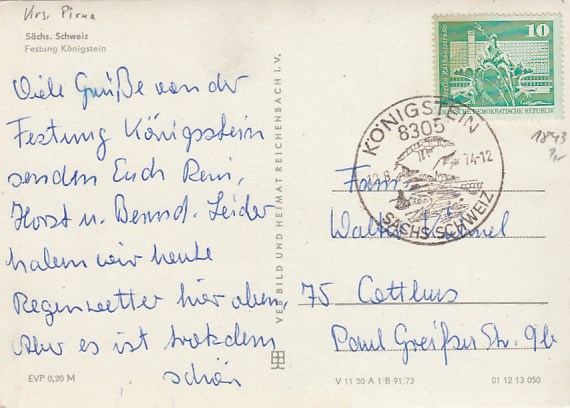 Krs. Pirna
Sächs. Schweiz
Festung Königstein
Viele Grüße von der
Festung Königstein
senden Euch Reni,
Horst u. Bernd. Leider
haben wir heute
Regenwetter hier oben,
Aber es ist trotzdem
schön
EVP 0,20 M
VEB BILD UND HEIMAT REICHENBACH I. V.
10
DEUTSCHE DEMOKRATISCHE REPUBLIK
KÖNIGSTEIN
8305
14-12
SÄCHS. SCHWEIZ
1843
Fam.
Walter
75 Cottbus
Paul Greifzu Str. 9b
V 11 50 A 1 B 91/73
01 12 13 050